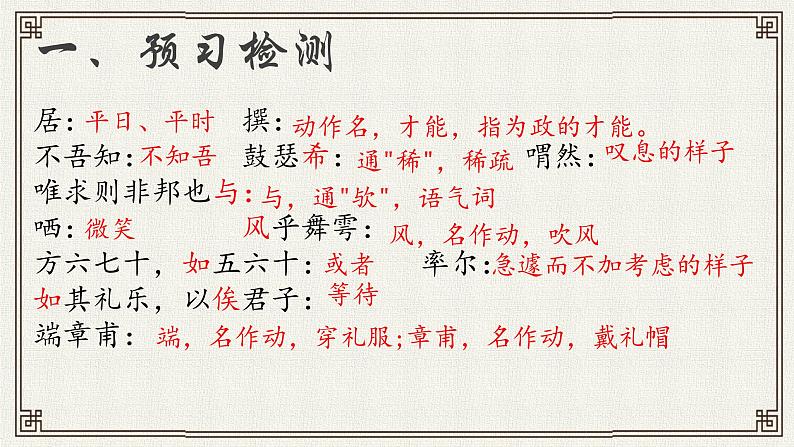 一、预习检测
居：平日、平时 撰：动作名，才能，指为政的才能。
不吾知：不知吾 鼓瑟希：通"稀"，稀疏 喟然：叹息的样子
唯求则非邦也与：与，通"欤"，语气词
哂：微笑 风乎舞雩：风，名作动，吹风
方六七十，如五六十：或者 率尔：急遽而不加考虑的样子
如其礼乐，以俟君子：等待
端章甫：端，名作动，穿礼服；章甫，名作动，戴礼帽